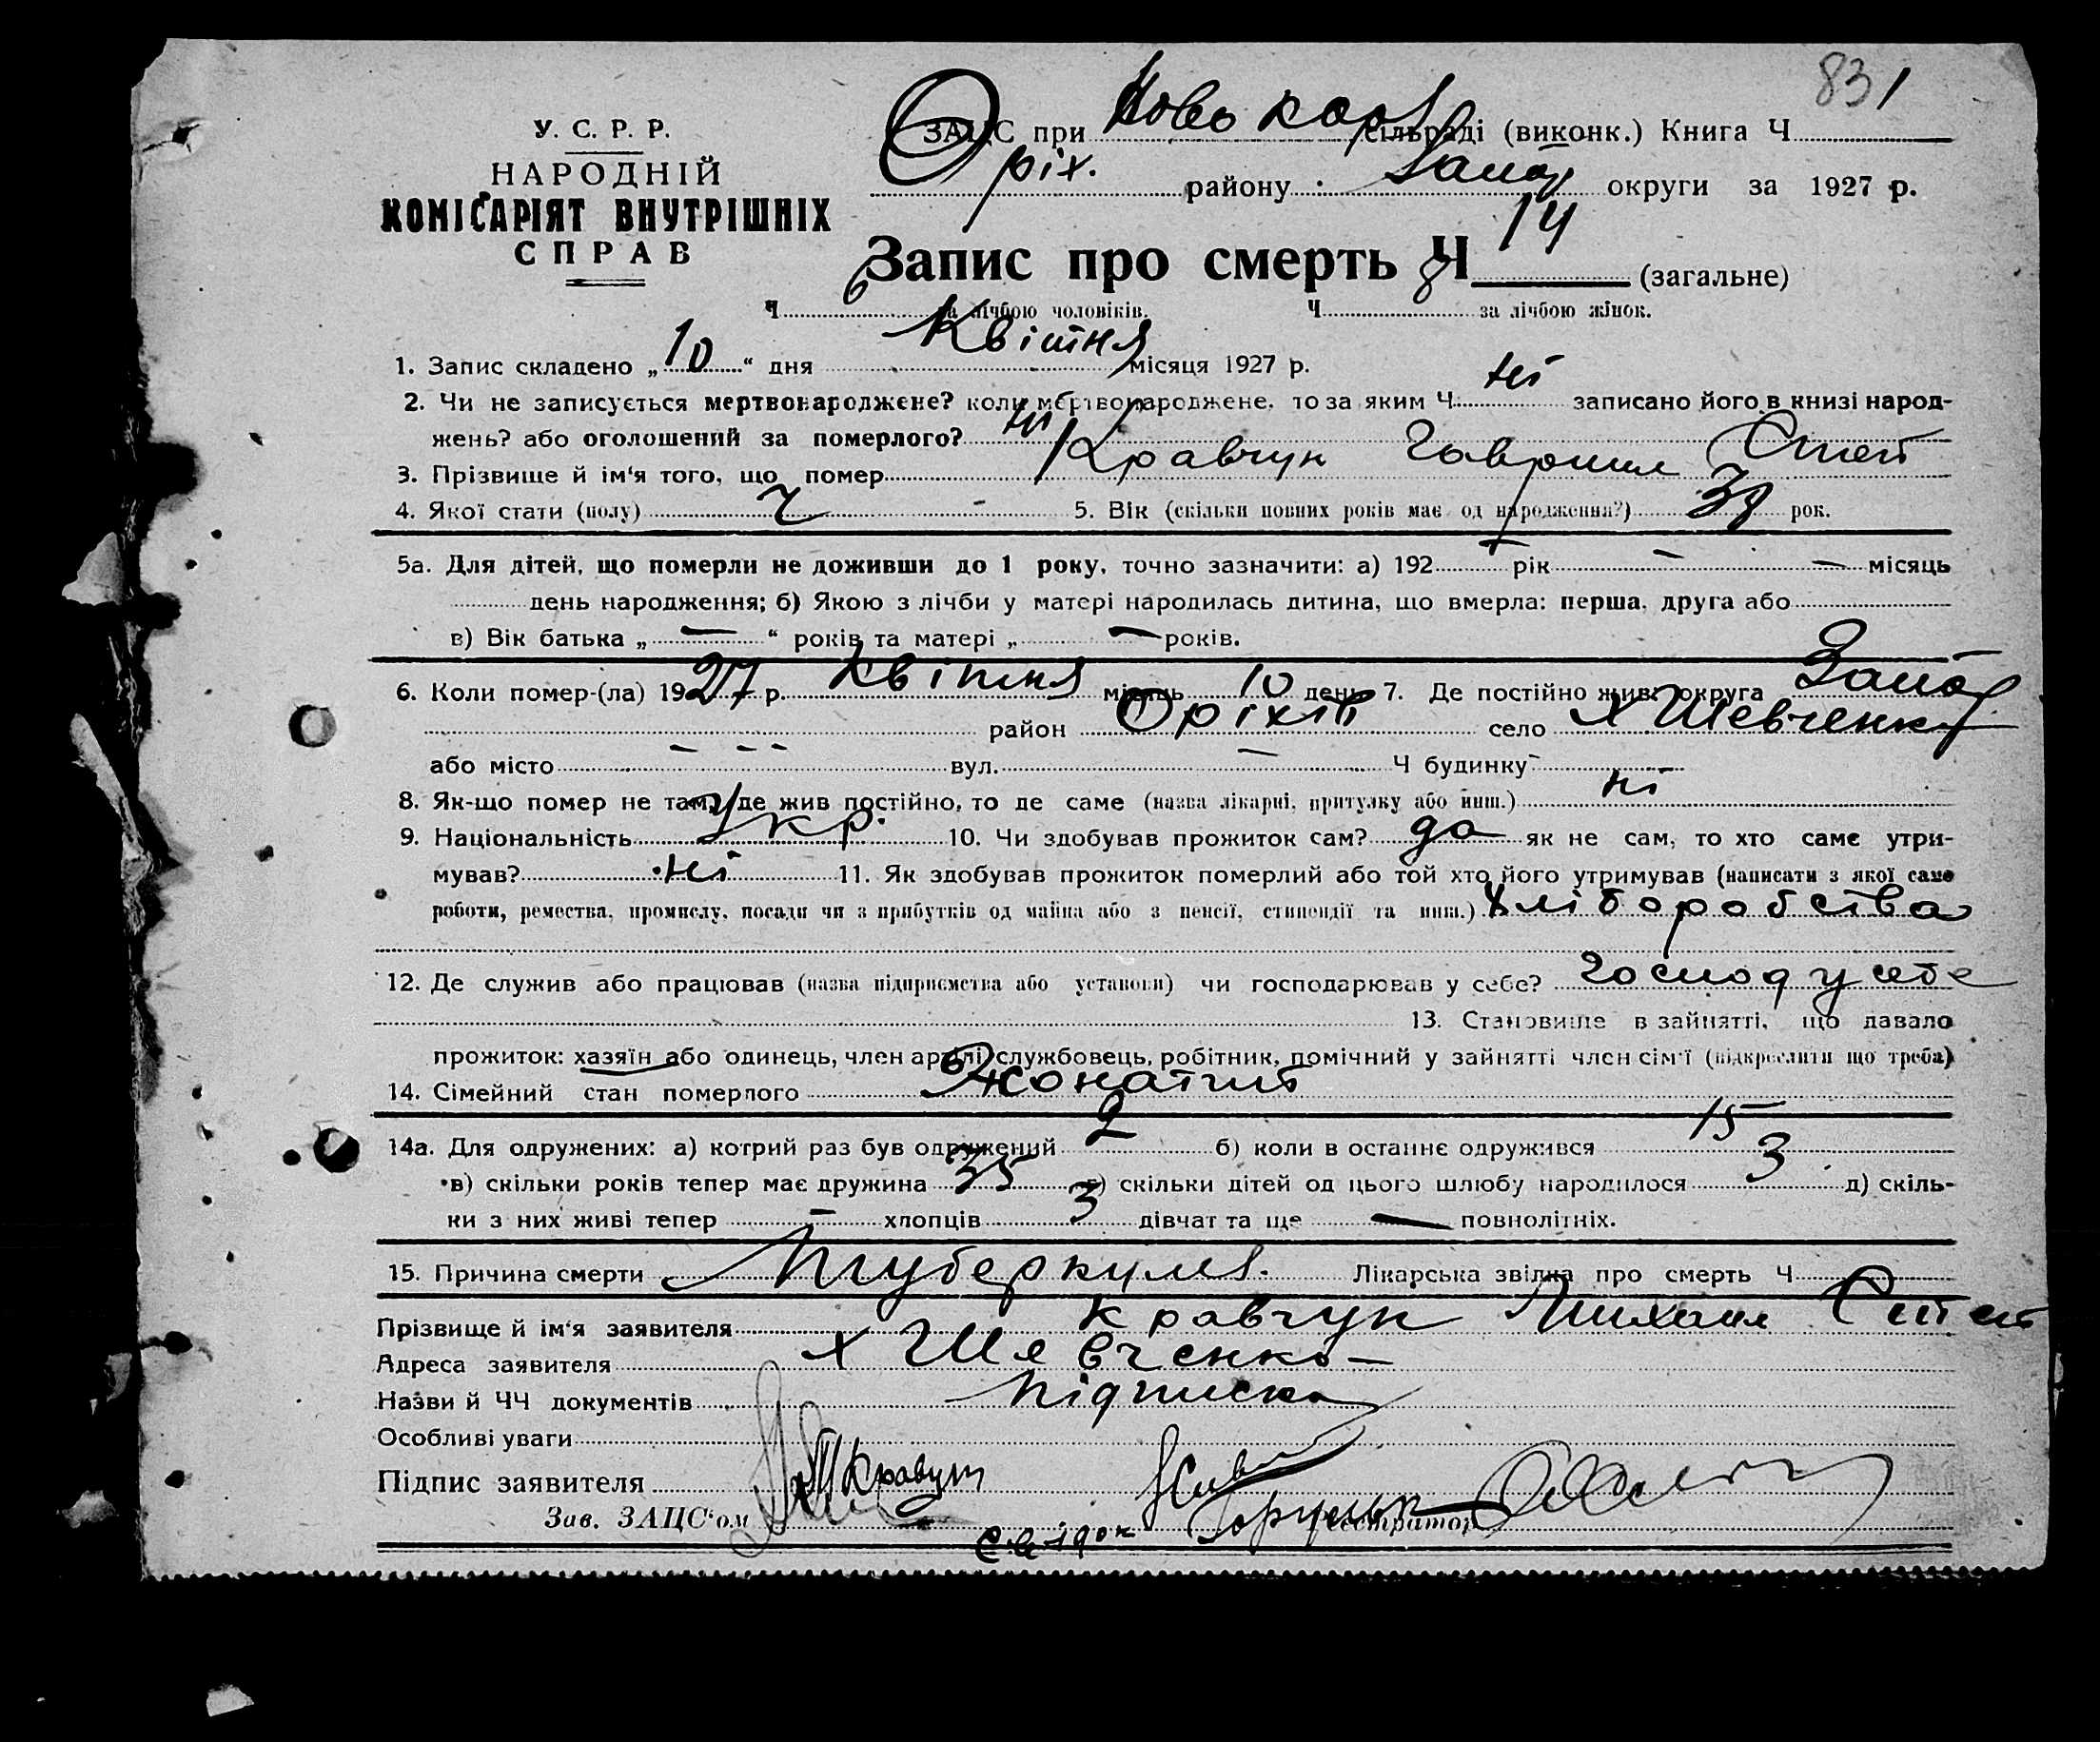 831
У. С. Р. Р.
НАРОДНІЙ
КОМІСАРІЯТ ВНУТРІШНІХ
СПРАВ
ЗАЦС при Ново карл сільраді (виконк.) Книга Ч
Оріх. району Запор округи за 1927 р.
Запис про смерть Ч 14 (загальне)
Ч 6 за лічбою чоловіків. Ч 8 за лічбою жінок.
1. Запис складено „10“ дня Квітня місяця 1927 р.
2. Чи не записується мертвонароджене? коли мертвонароджене, то за яким Ч. ні записано його в книзі народ-
жень? або оголошений за померлого? ні
3. Прізвище й ім'я того, що помер Кравчук Гавриил Степ
4. Якої стати (полу) ч - 5. Вік (скільки повних років має од народження?) 38 рок.
5а. Для дітей, що померли не доживши до 1 року, точно зазначити: а) 192 — рік — — місяць
день народження; б) Якою з лічби у матері народилась дитина, що вмерла: перша, друга або
в) Вік батька „ — “ років та матері „ — років.
6. Коли помер-(ла) 1927 р. Квітня місяць 10 день 7. Де постійно жив: округа Запор
район Оріхів село х Шевченко
або місто — — — вул. — Ч будинку —
8. Як-що помер не там, де жив постійно, то де саме (назва лікарні, притулку або инш.) ні
9. Національність Укр. 10. Чи здобував прожиток сам? да як не сам, то хто саме утри-
мував? ні 11. Як здобував прожиток померлий або той хто його утримував (написати з якої саме
роботи, ремества, промислу, посади чи з прибутків од майна або з пенсії, стипендії та инш.) Хліборобства
12. Де служив або працював (назва підприємства або установи) чи господарював у себе? Господ у себе
13. Становище в зайнятті, що давало
прожиток: хазяїн або одинець, член артілі, службовець, робітник, помічний у зайнятті член сім'ї (підкреслити що треба)
14. Сімейний стан померлого Жонатий
14а. Для одружених: а) котрий раз був одружений 2 б) коли в останнє одружився 15
в) скільки років тепер має дружина 35 г) скільки дітей од цього шлюбу народилося 3 д) скіль-
ки з них живі тепер — хлопців 3 дівчат та ще — повнолітніх.
15. Причина смерти Туберкульо. Лікарська звідка про смерть Ч
Прізвище й ім'я заявителя Кравчук Михаил Степ
Адреса заявителя х Шевченко —
Назви й ЧЧ документів підписка
Особливі уваги
Підпис заявителя М Кравчук
Зав. ЗАЦС'ом Свідок Реєстратор